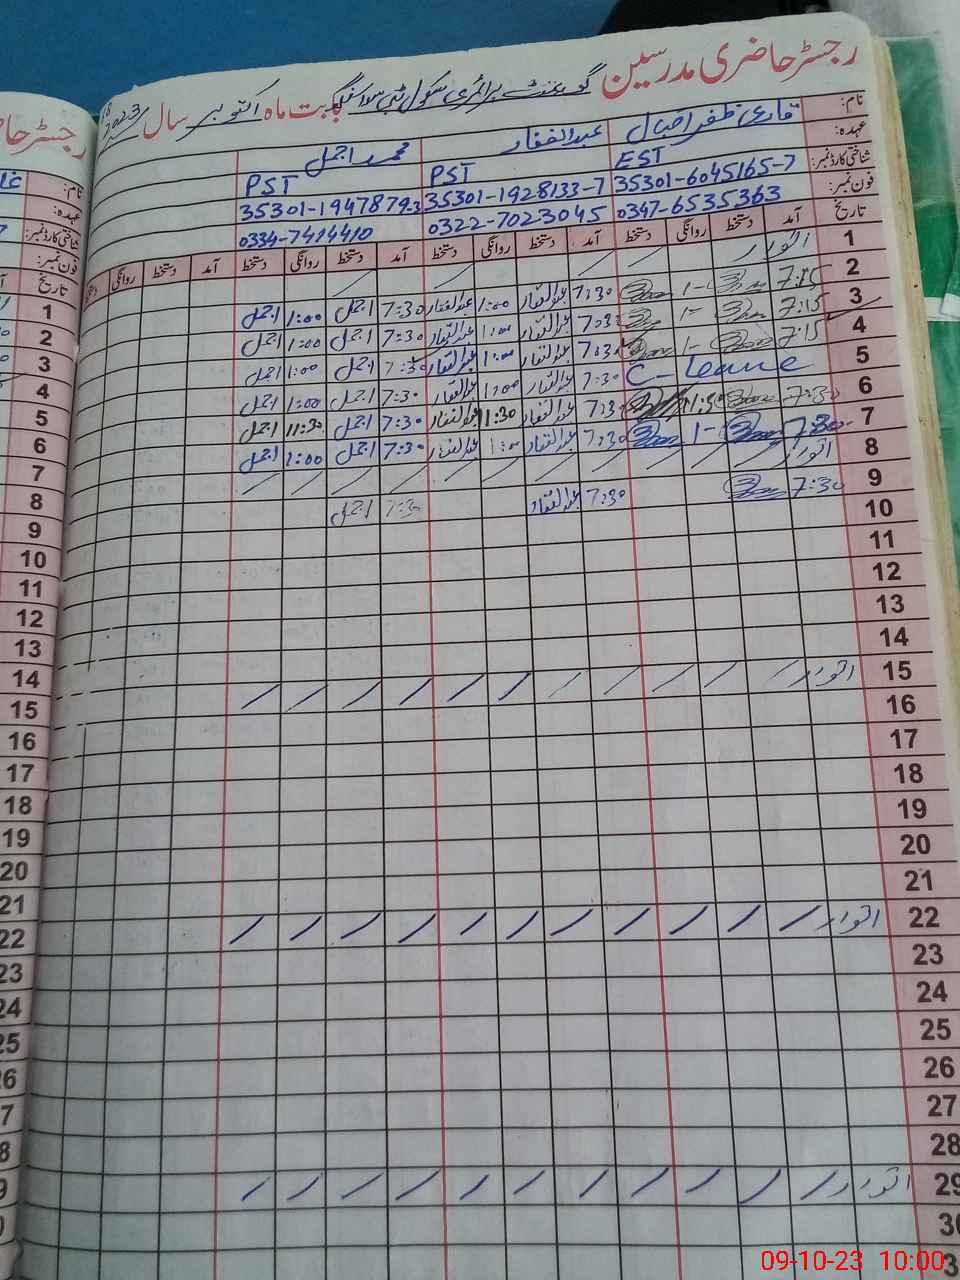 رجسٹر حاضری مدرسین گورنمنٹ پرائمری سکول بابت ماہ اکتوبر سال 2023
نام: قاری ظفر اقبال عبدالغفار محمد اجمل
عہدہ: EST PST PST
شناختی کارڈ نمبر: 35301-6045165-7 35301-1928133-7 35301-1947879-3
فون نمبر: 0347-6535363 0322-7023045 0334-7414410
تاریخ آمد دستخط روانگی دستخط آمد دستخط روانگی دستخط آمد دستخط روانگی دستخط آمد دستخط روانگی دستخط
1 اتوار
2 7:15 1- 7:30 عبدالغفار 1:00 عبدالغفار 7:30 اجمل 1:00 اجمل
3 7:15 1- 7:30 عبدالغفار 1:00 عبدالغفار 7:30 اجمل 1:00 اجمل
4 7:15 1- 7:30 عبدالغفار 1:00 عبدالغفار 7:30 اجمل 1:00 اجمل
5 C-Leave 7:30 عبدالغفار 1:00 عبدالغفار 7:30 اجمل 1:00 اجمل
6 7:30 7:30 عبدالغفار 11:30 عبدالغفار 7:30 اجمل 11:30 اجمل
7 7:30 1- 7:30 عبدالغفار 1:00 عبدالغفار 7:30 اجمل 1:00 اجمل
8 اتوار
9 7:30 7:30 عبدالغفار 7:30 اجمل
10
11
12
13
14
15 اتوار
16
17
18
19
20
21
22 اتوار
23
24
25
26
27
28
29 اتوار
30
رجسٹر حا
نام:
عہدہ:
شناختی کارڈ نمبر:
فون نمبر:
تاریخ
1
2
3
4
5
6
7
8
9
10
11
12
13
14
15
16
17
18
19
20
21
22
23
24
25
09-10-23 10:00